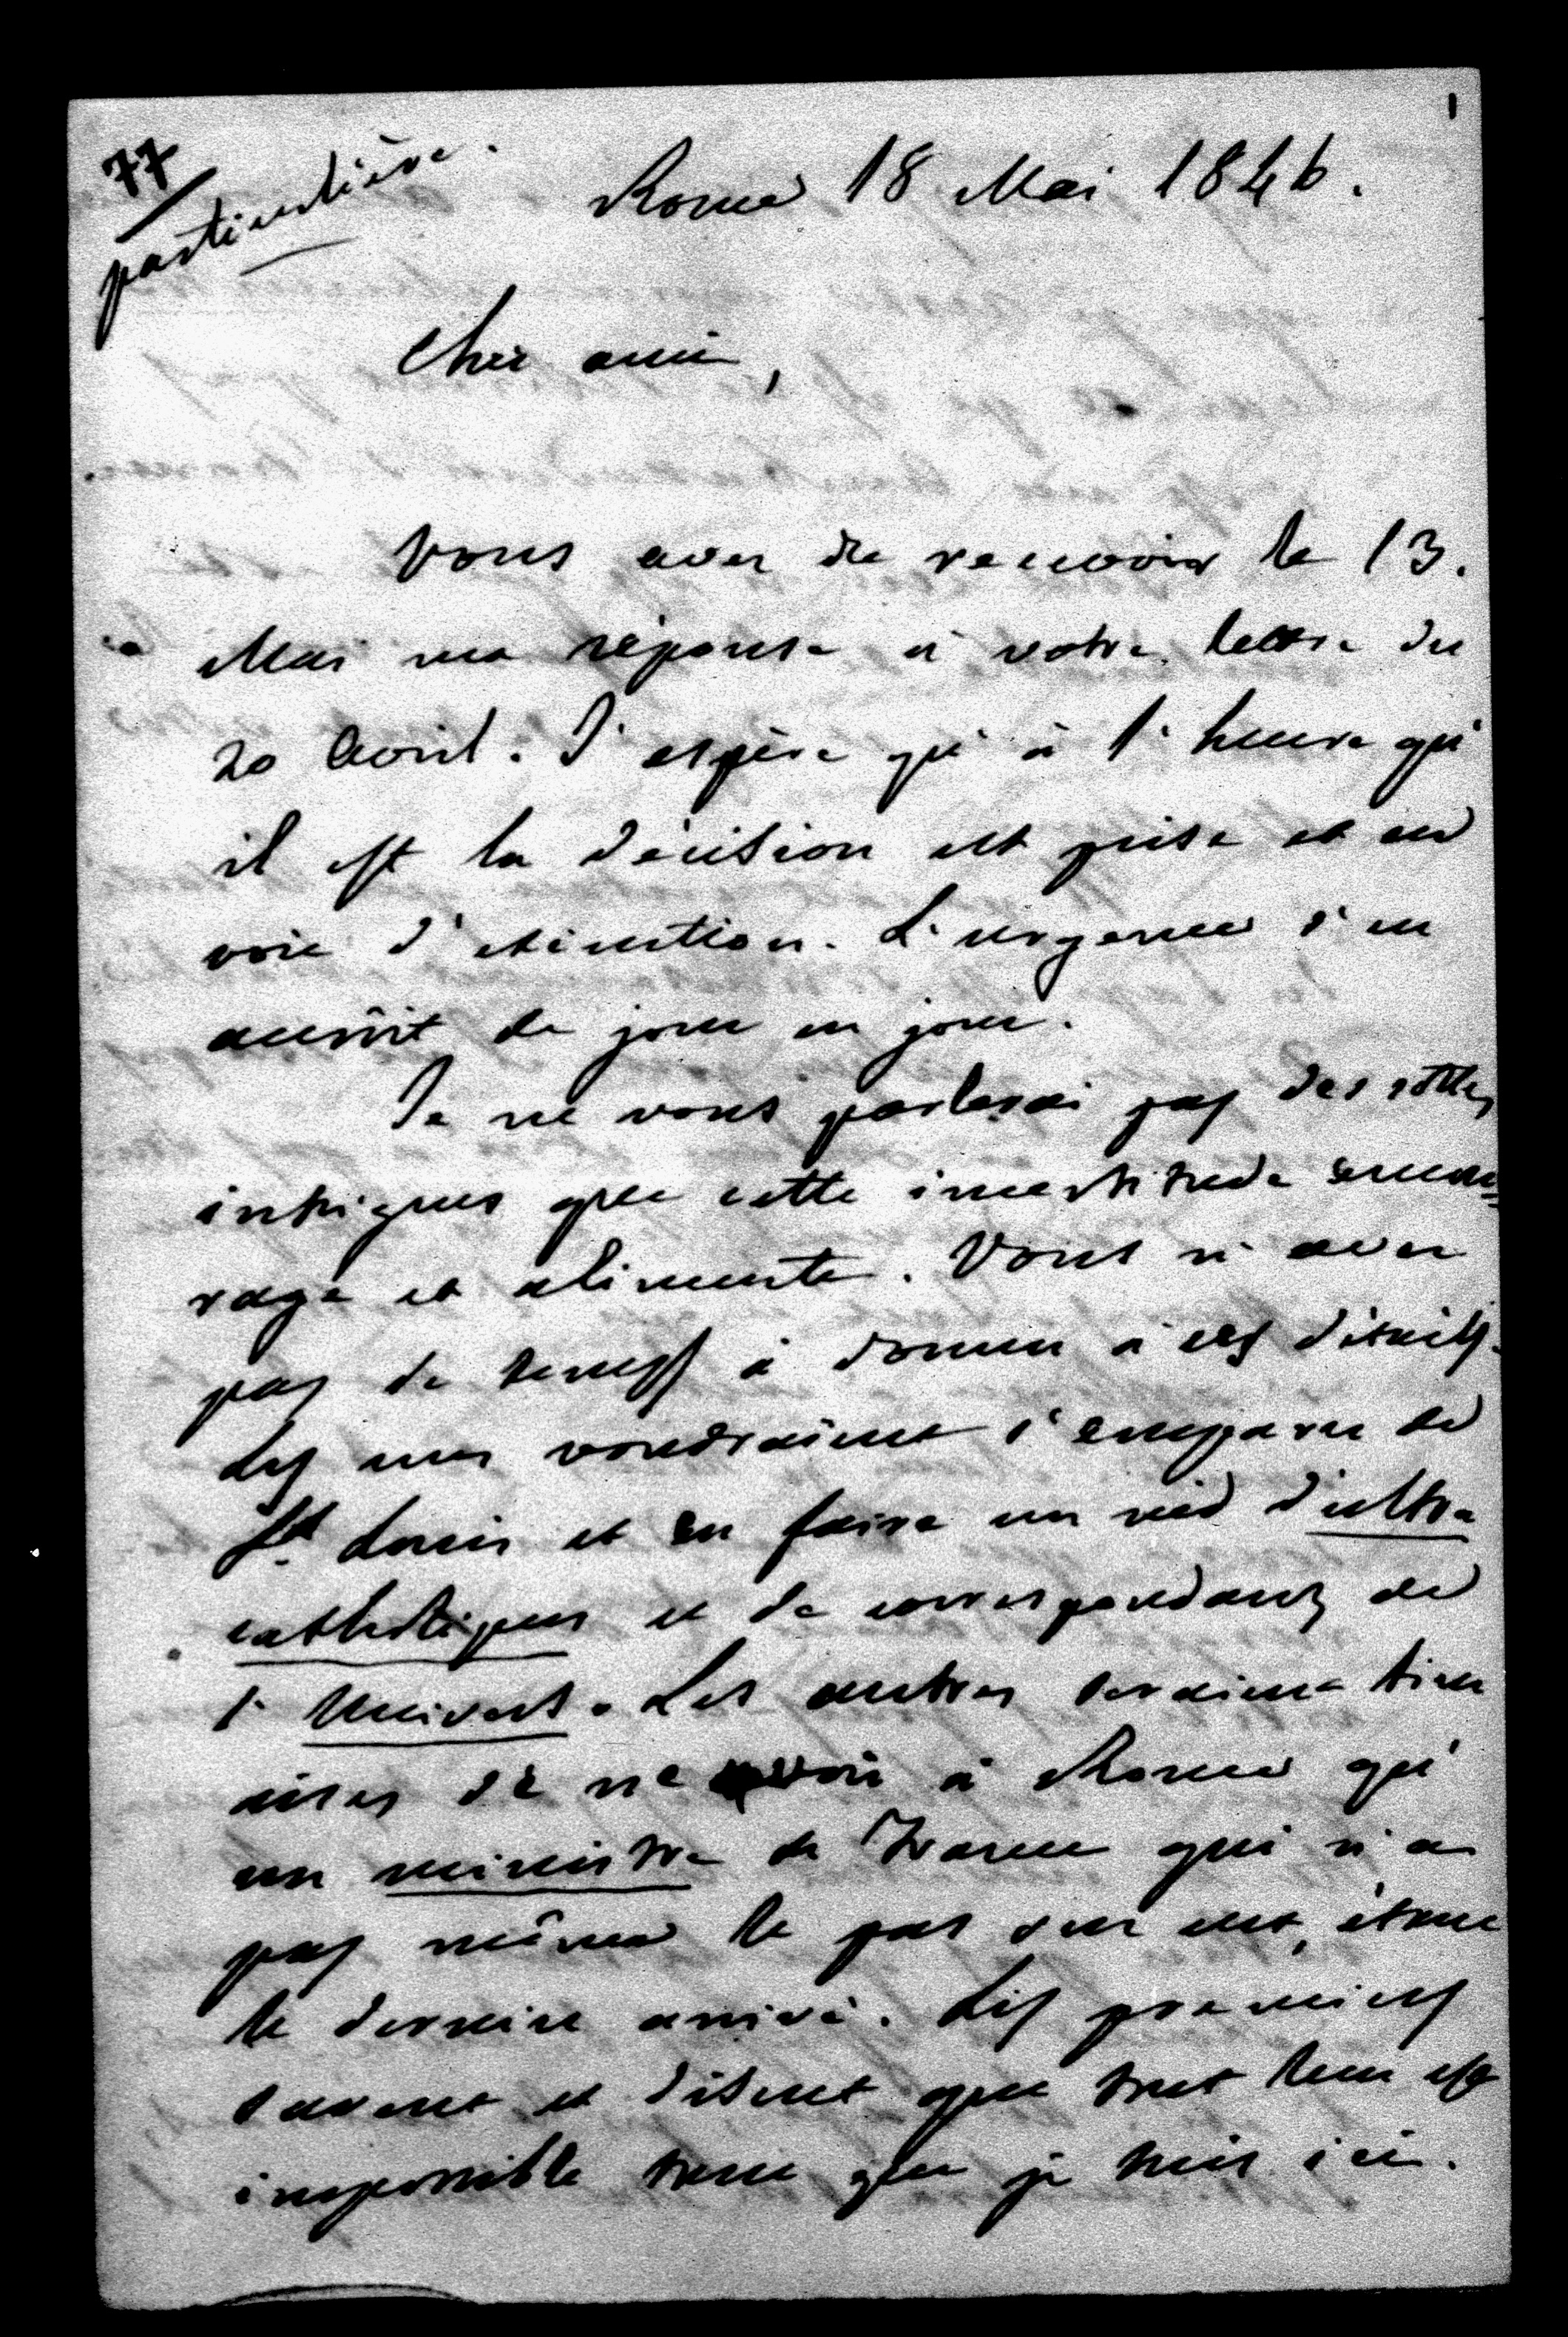 77
1
particulière.
Rome 18 Mai 1846.
Cher ami,
Vous avez dû recevoir le 13.
Mai ma réponse à votre lettre du
20 Avril. J'espère qu'à l'heure qu'
il est la décision est prise et en
voie d'exécution. L'urgence s'en
accroît de jour en jour.
Je ne vous parlerai pas des sottes
intrigues que cette incertitude encou=
rage et alimente. Vous n'avez
pas de temps à donner à ces détails.
Les uns voudraient s'emparer de
St. Louis et en faire un nid d'ultra
catholiques et de correspondants de
l'Univers. Les autres seraient bien
aises de ne voir à Rome qu'
un ministre de France qui n'a
pas même le pas sur eux, étant
le dernier arrivé. Les premiers
savent et disent que tout leur est
impossible tant que je suis ici.